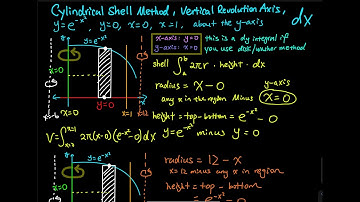 Cylindrical Shell Method, Vertical Revolution Axis, dx
y=e^-x², y=0, x=0, x=1, about the y-axis
y=e^-x²
x-axis: y=0
y-axis: x=0
this is a dy integral if
you use disk/washer method
shell ∫_a^b 2πr · height · dx
x=0
radius = x-0
y-axis
any x in the region minus x=0
y=0
height = top-bottom = e^-x² - 0
x=0
x=1
V=∫_{x=0}^{x=1} 2π(x-0)(e^-x²-0)dx
y=e^-x² minus y=0
y=e^-x²
radius = 12-x
x=12 minus any x in region
x=0
height = top-bottom